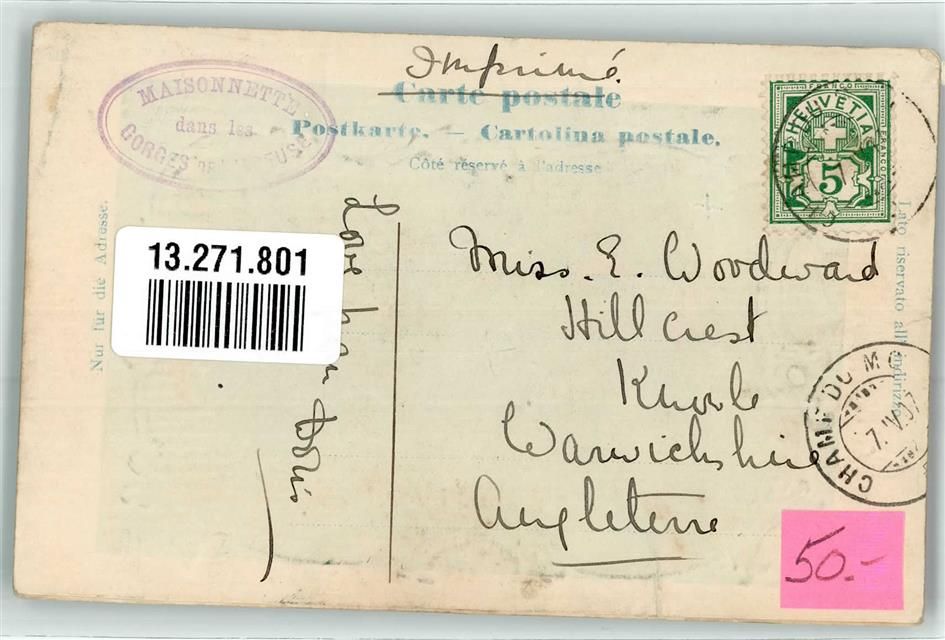 Imprimé.
Carte postale
Postkarte. — Cartolina postale.
Côté réservé à l'adresse
MAISONNETTE
dans les
GORGES DE L'AREUSE
Nur für die Adresse.
Lato riservato all'indirizzo.
FRANCO
HELVETIA
FRANCO
5
13.271.801
Love from Doris
Miss. E. Woodward
Hill Crest
Knowle
Warwickshire
Angleterre
CHAMP DU MO
7.IV.07
50.-